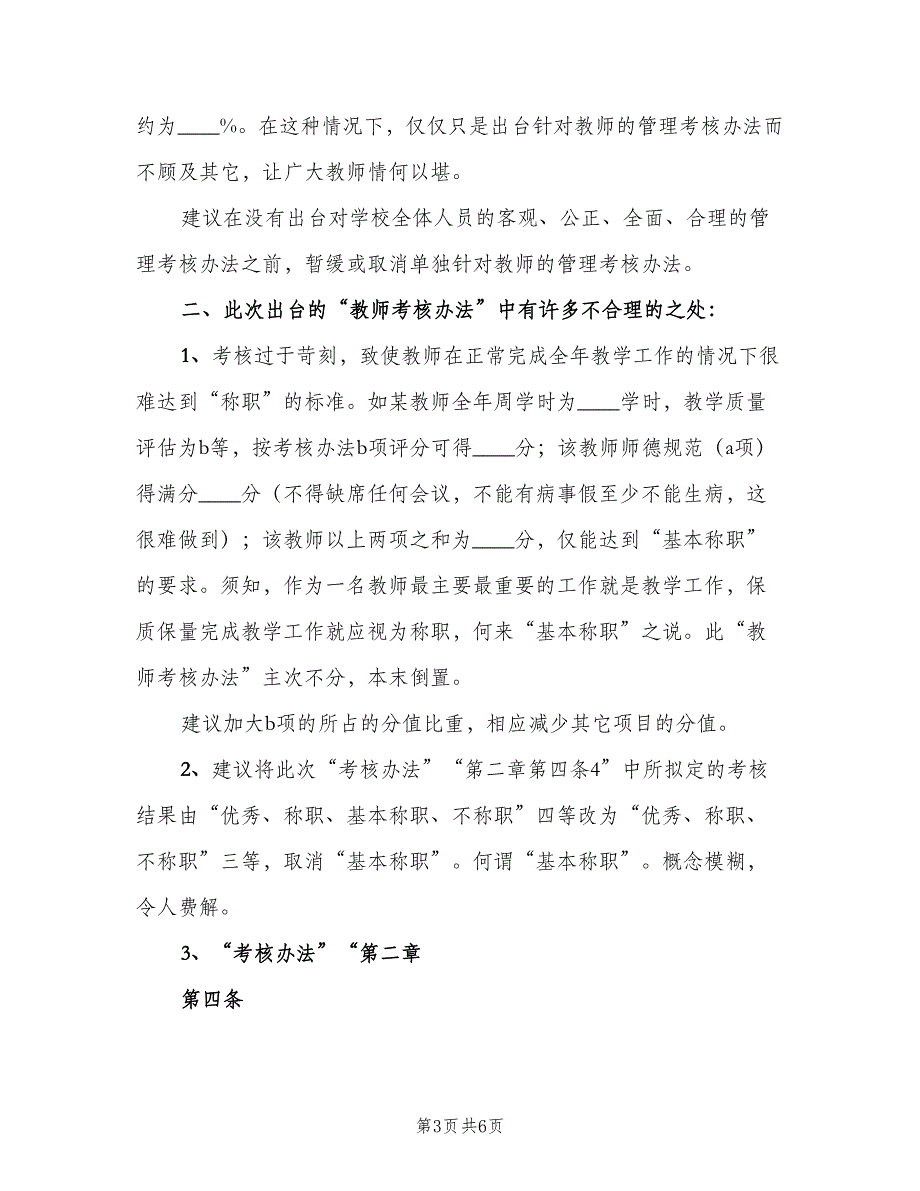 约为____%。在这种情况下，仅仅只是出台针对教师的管理考核办法而
不顾及其它，让广大教师情何以堪。
建议在没有出台对学校全体人员的客观、公正、全面、合理的管
理考核办法之前，暂缓或取消单独针对教师的管理考核办法。
二、此次出台的“教师考核办法”中有许多不合理的之处：
1、考核过于苛刻，致使教师在正常完成全年教学工作的情况下很
难达到“称职”的标准。如某教师全年周学时为____学时，教学质量
评估为b等，按考核办法b项评分可得____分；该教师师德规范（a项）
得满分____分（不得缺席任何会议，不能有病事假至少不能生病，这
很难做到）；该教师以上两项之和为____分，仅能达到“基本称职”
的要求。须知，作为一名教师最主要最重要的工作就是教学工作，保
质保量完成教学工作就应视为称职，何来“基本称职”之说。此“教
师考核办法”主次不分，本末倒置。
建议加大b项的所占的分值比重，相应减少其它项目的分值。
2、建议将此次“考核办法”“第二章第四条4”中所拟定的考核
结果由“优秀、称职、基本称职、不称职”四等改为“优秀、称职、
不称职”三等，取消“基本称职”。何谓“基本称职”。概念模糊，
令人费解。
3、“考核办法”“第二章
第四条
第3页 共6页